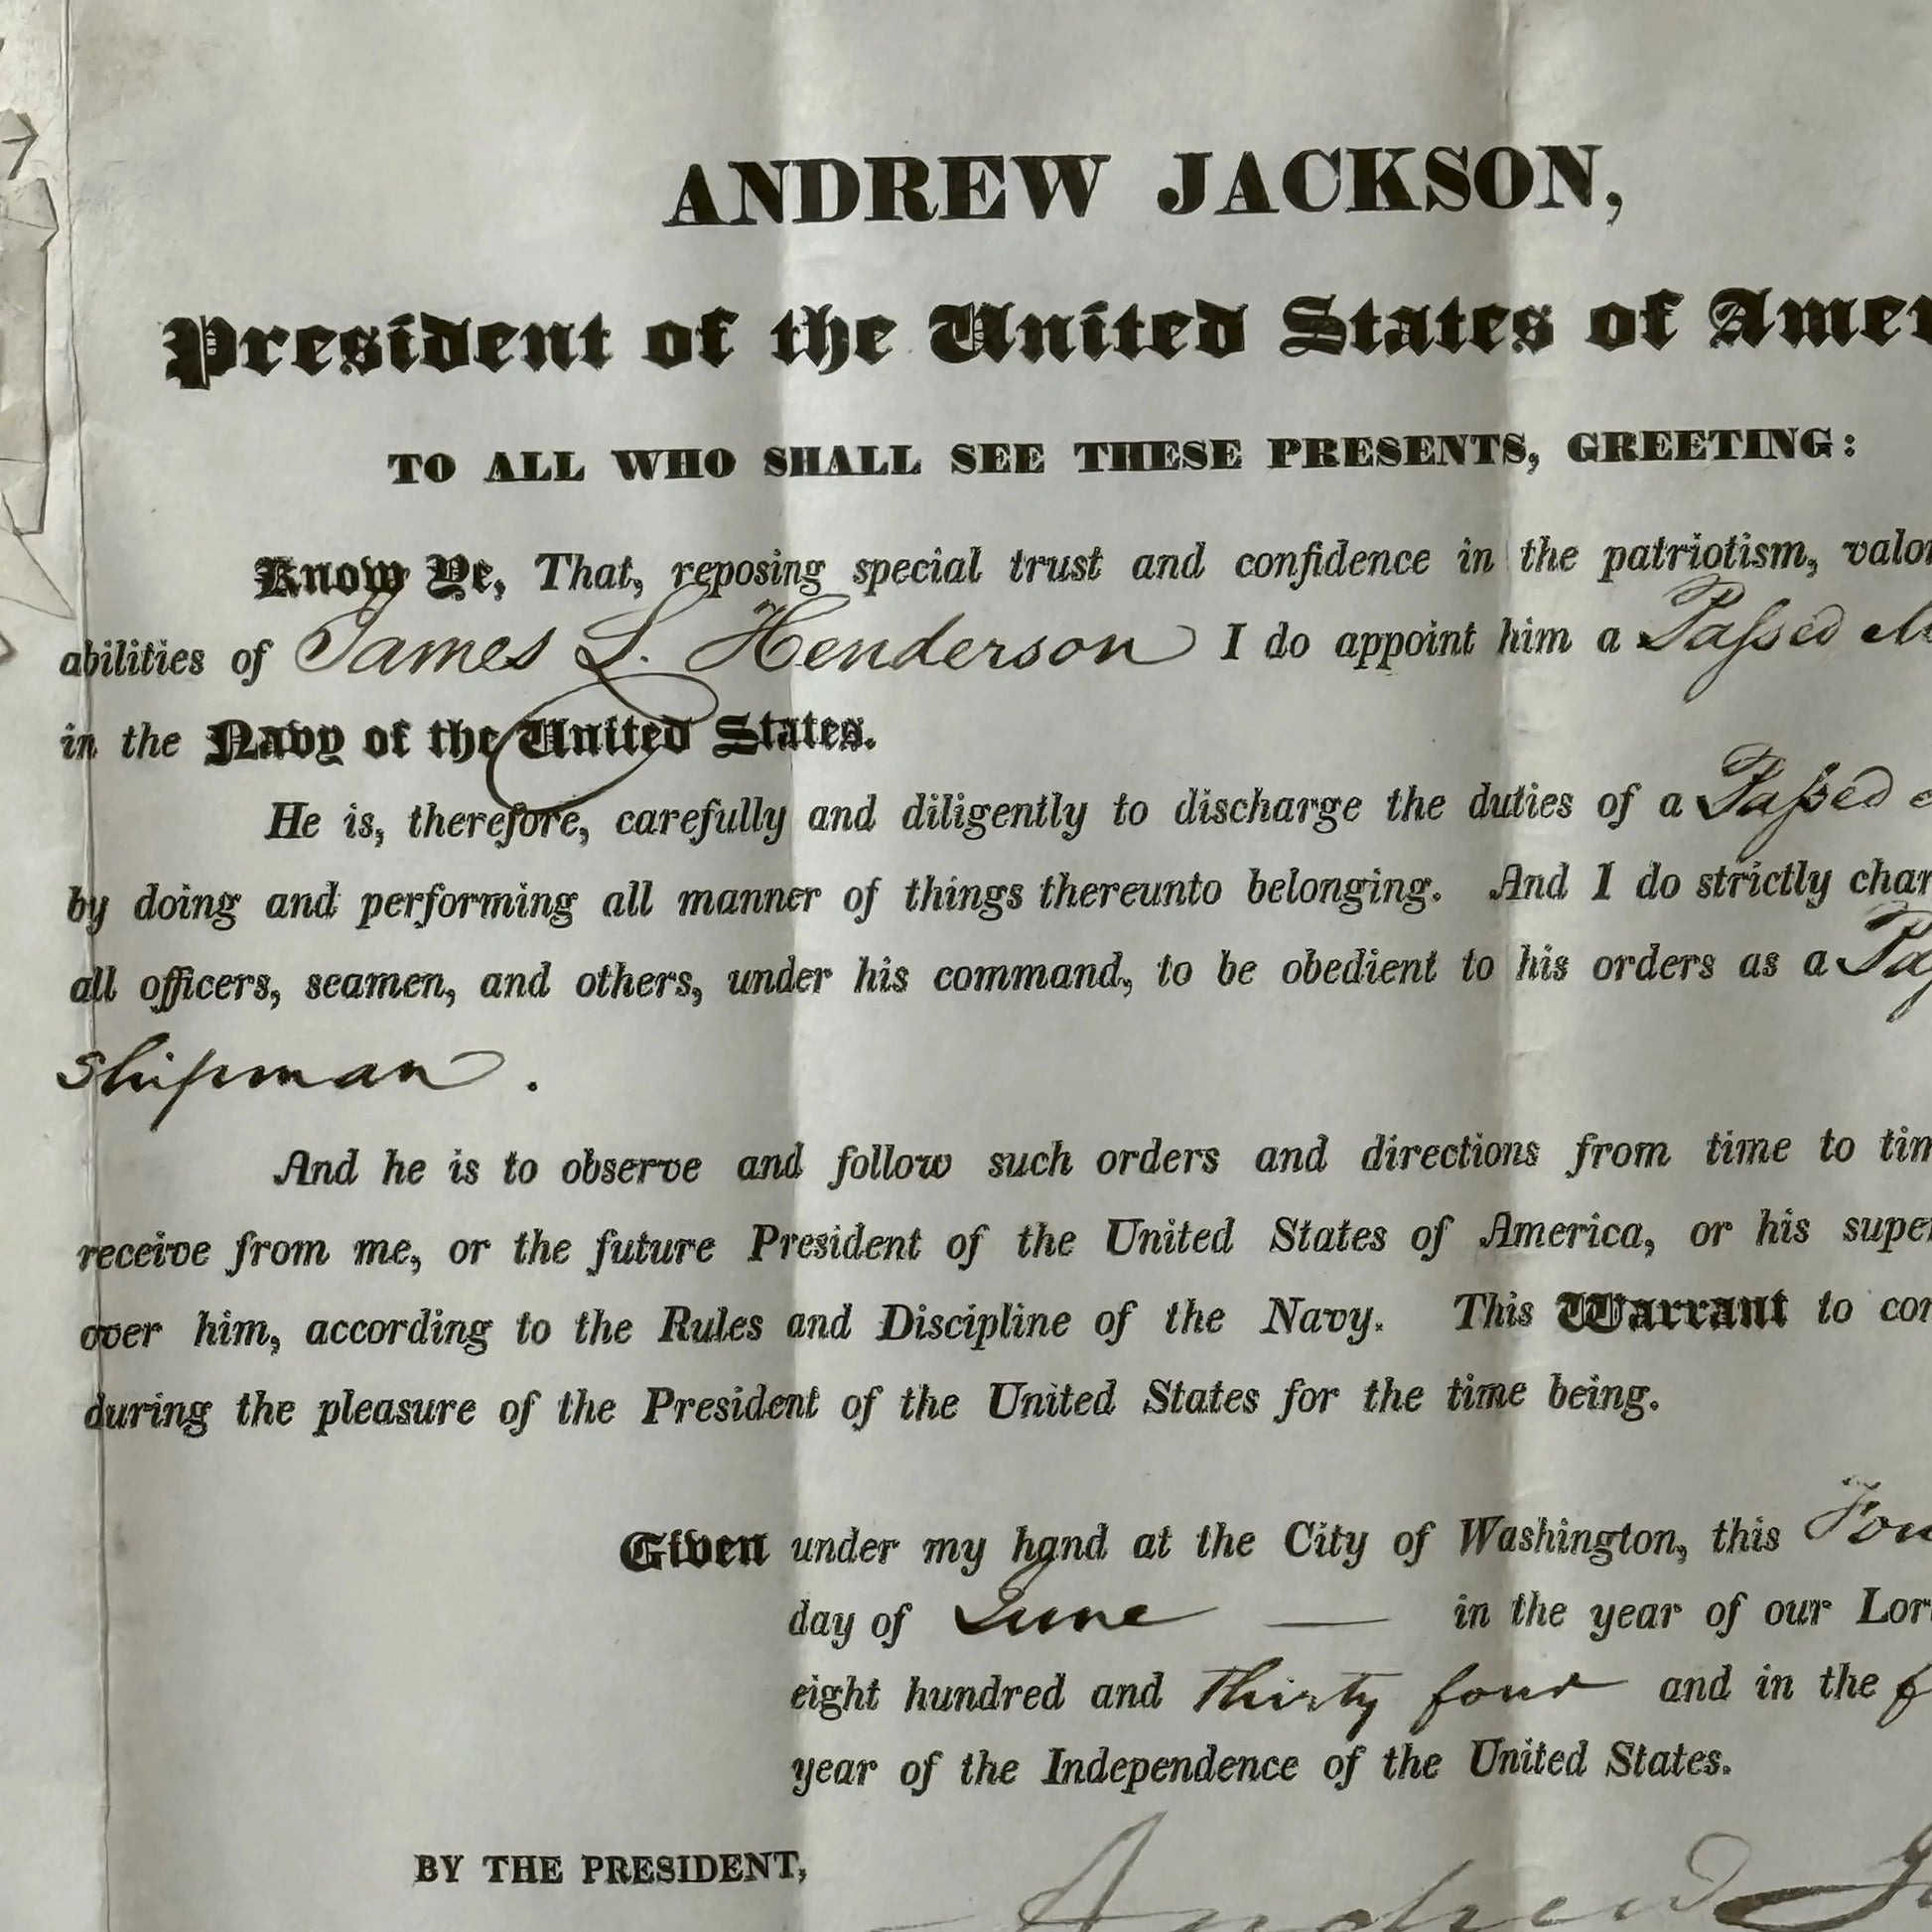 ANDREW JACKSON,
President of the United States of Amer
TO ALL WHO SHALL SEE THESE PRESENTS, GREETING:
Know Ye, That, reposing special trust and confidence in the patriotism, valor
abilities of James L. Henderson I do appoint him a Passed M
in the Navy of the United States.
He is, therefore, carefully and diligently to discharge the duties of a Passed
by doing and performing all manner of things thereunto belonging. And I do strictly char
all officers, seamen, and others, under his command, to be obedient to his orders as a Pas
shipman.
And he is to observe and follow such orders and directions from time to tim
receive from me, or the future President of the United States of America, or his super
over him, according to the Rules and Discipline of the Navy. This Warrant to con
during the pleasure of the President of the United States for the time being.
Given under my hand at the City of Washington, this Fou
day of June — in the year of our Lor
eight hundred and thirty four and in the f
year of the Independence of the United States.
BY THE PRESIDENT,
Andrew J